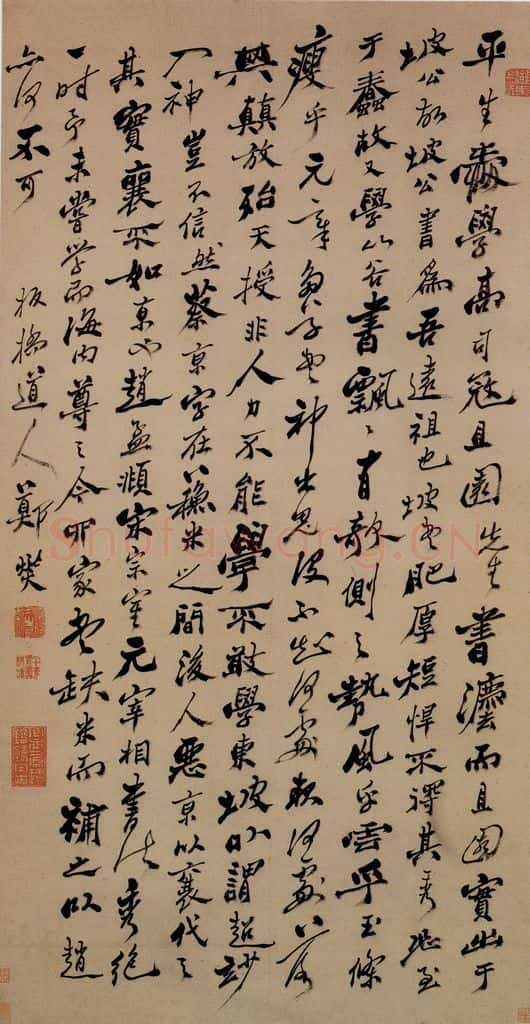 平生愛學高司寇且園先生書灋而且園實出于
坡公故坡公書爲吾遠祖也坡書肥厚短悍不得其秀恐至
于蠢故又學山谷書飄〻有欹側之勢風乎雲乎玉條
瘦乎元章多草書神出鬼沒不知何處起何處落
興顛放殆天授非人力不能學不敢學東坡以謂超妙
入神豈不信然蔡京字在蘇米之間後人惡京以襄代之
其實襄不如京也趙孟頫宋宗室元宰相書法秀絕
一時予未嘗學而海內尊之今四家書缺米而補之以趙
亦何不可
板橋道人鄭燮
Shufawang.CN